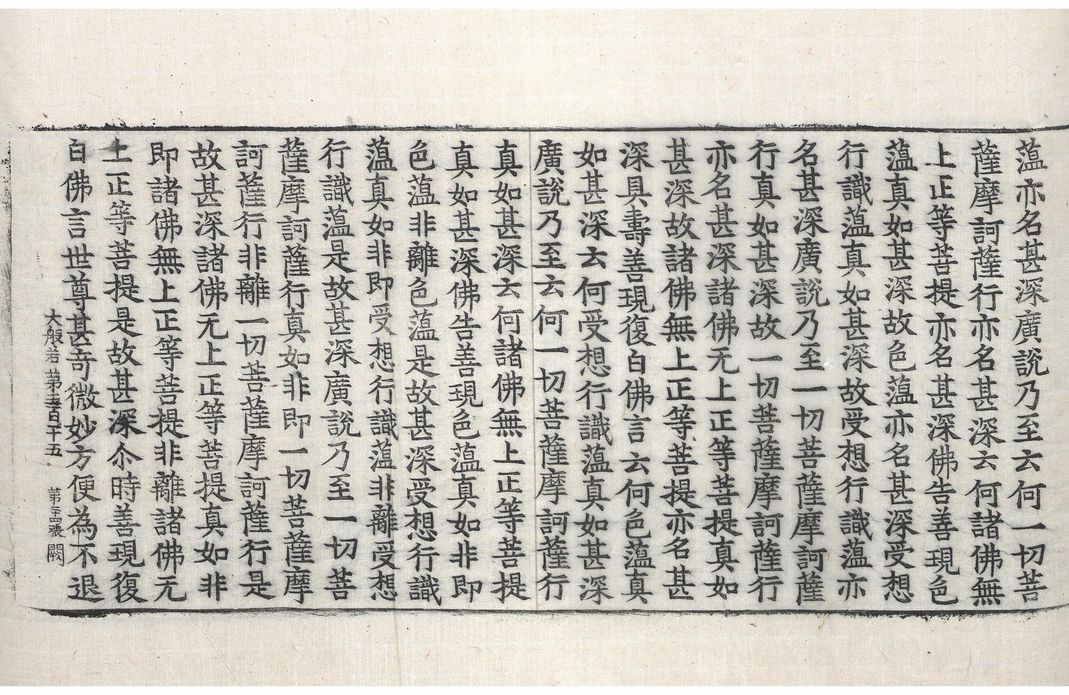 蕰亦名甚深廣說乃至云何一切菩
薩摩訶薩行亦名甚深云何諸佛無
上正等菩提亦名甚深佛告善現色
蕰真如甚深故色蕰亦名甚深受想
行識蕰真如甚深故受想行識蕰亦
名甚深廣說乃至一切菩薩摩訶薩
行真如甚深故一切菩薩摩訶薩行
亦名甚深諸佛无上正等菩提真如
甚深故諸佛無上正等菩提亦名甚
深具壽善現復白佛言云何色蕰真
如甚深云何受想行識蕰真如甚深
廣說乃至云何一切菩薩摩訶薩行
真如甚深云何諸佛無上正等菩提
真如甚深佛告善現色蕰真如非即
色蕰非離色蕰是故甚深受想行識
蕰真如非即受想行識蕰非離受想
行識蕰是故甚深廣說乃至一切菩
薩摩訶薩行真如非即一切菩薩摩
訶薩行非離一切菩薩摩訶薩行是
故甚深諸佛无上正等菩提真如非
即諸佛無上正等菩提非離諸佛无
上正等菩提是故甚深尒時善現復
白佛言世尊甚奇微妙方便為不退
大般若 第五百十五 第二十四張 闕